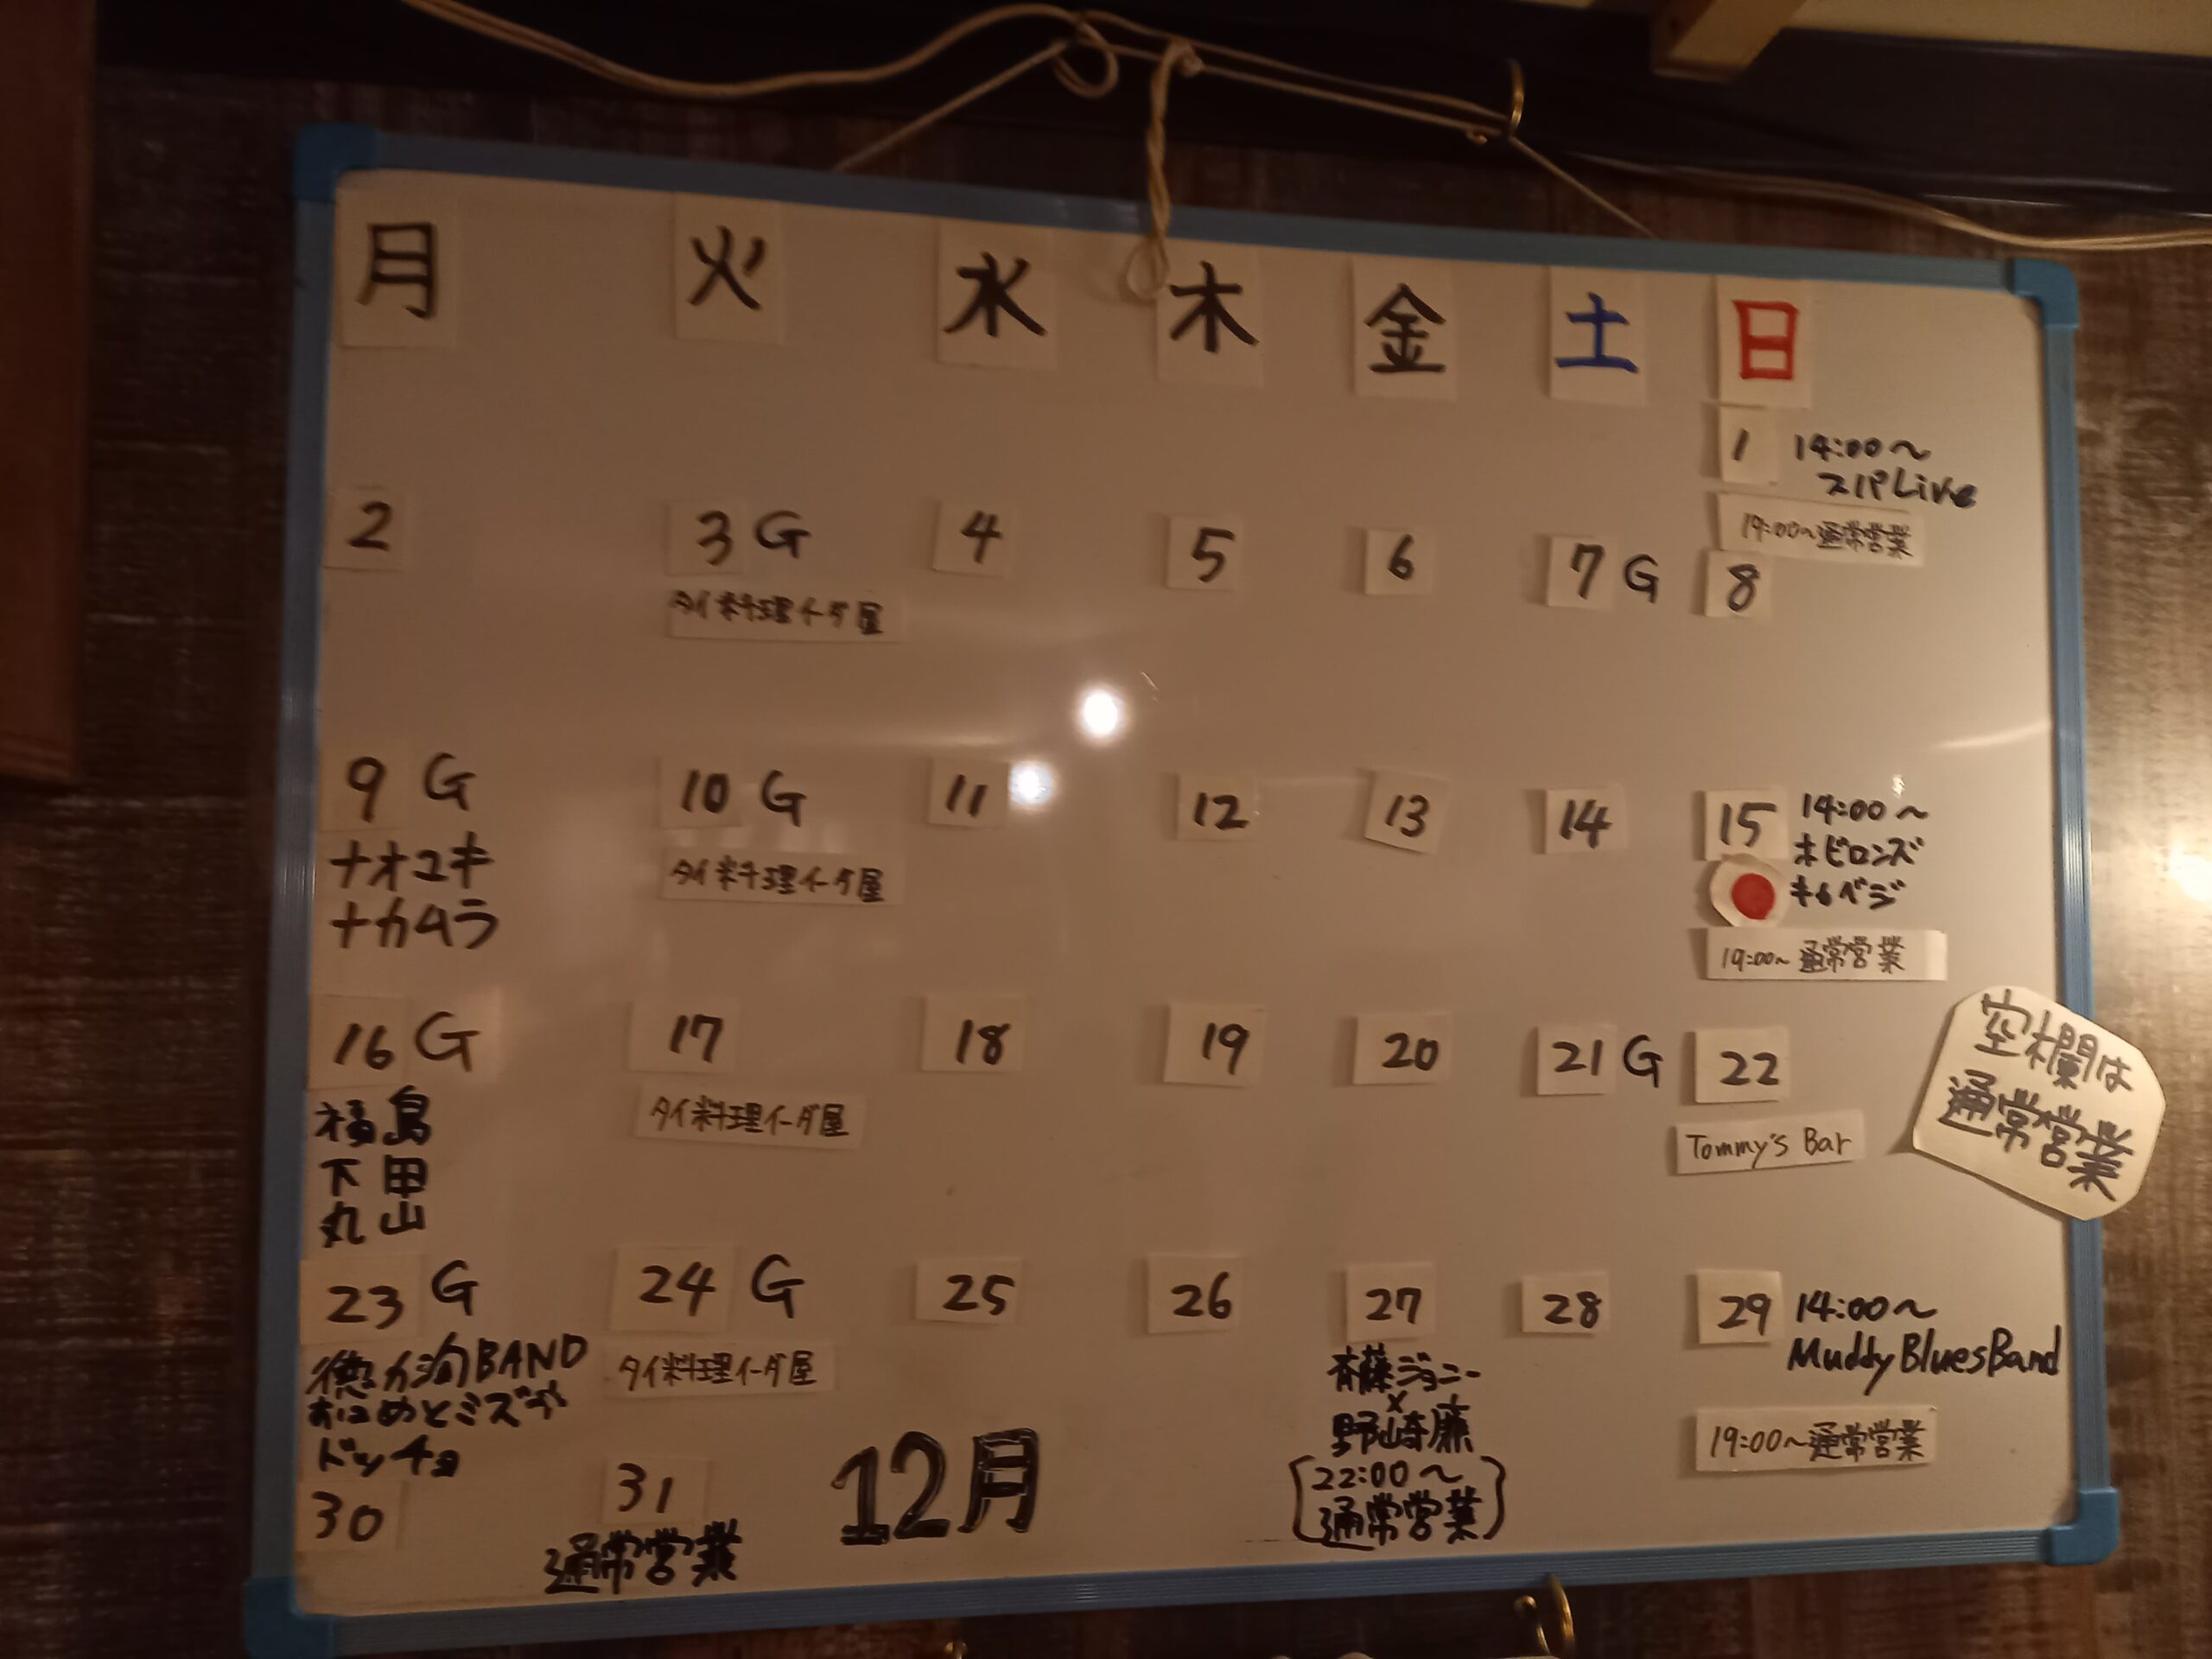 月 火 水 木 金 土 日
1 14:00〜
スパLive
19:00〜通常営業
2 3 G 4 5 6 7 G 8
タイ料理イーダ屋
9 G 10 G 11 12 13 14 15 14:00〜
ナオユキ
ナカムラ
タイ料理イーダ屋
ホビロンズ
キャベジ
19:00〜通常営業
16 G 17 18 19 20 21 G 22
福島
下田
丸山
タイ料理イーダ屋
Tommy's Bar
空欄は
通常営業
23 G 24 G 25 26 27 28 29 14:00〜
BAND
ドッチョ
タイ料理イーダ屋
斉藤ジョニー
×
野崎廉
[22:00〜
通常営業]
Muddy Blues Band
19:00〜通常営業
30 31
通常営業
12月